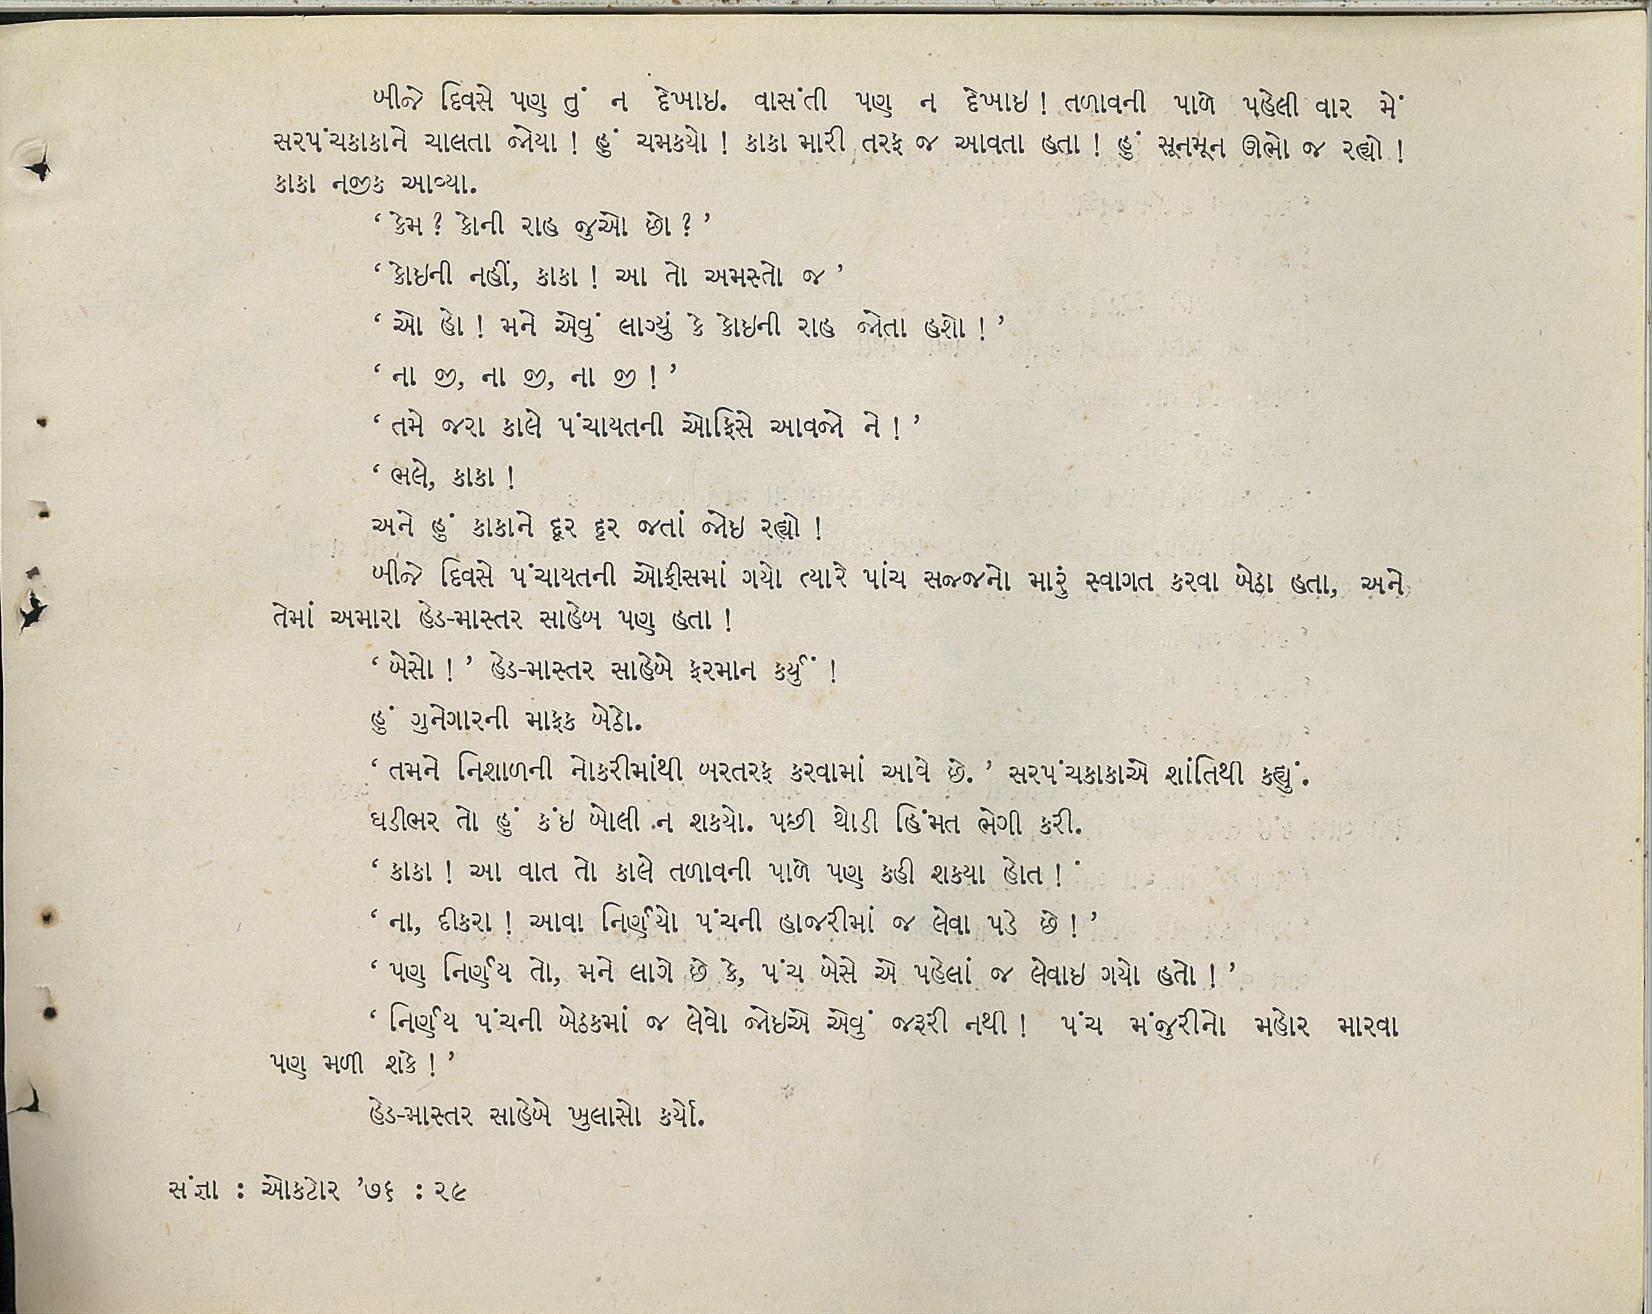 બીજે દિવસે પણ તું ન દેખાઇ. વાસંતી પણ ન દેખાઇ ! તળાવની પાળે પહેલી વાર મેં
સરપંચકાકાને ચાલતા જોયા ! હું ચમકયો ! કાકા મારી તરફ જ આવતા હતા ! હું સૂનમૂન ઊભો જ રહ્યો !
કાકા નજીક આવ્યા.
‘ કેમ ? કોની રાહ જુઓ છો ? ’
‘ કોઇની નહીં, કાકા ! આ તો અમસ્તો જ ’
‘ ઓ હો ! મને એવું લાગ્યું કે કોઇની રાહ જોતા હશો ! ’
‘ ના જી, ના જી, ના જી ! ’
‘ તમે જરા કાલે પંચાયતની ઓફિસે આવજો ને ! ’
‘ ભલે, કાકા !
અને હું કાકાને દૂર દૂર જતાં જોઇ રહ્યો !
બીજે દિવસે પંચાયતની ઓફીસમાં ગયો ત્યારે પાંચ સજ્જનો મારું સ્વાગત કરવા બેઠા હતા, અને
તેમાં અમારા હેડ-માસ્તર સાહેબ પણ હતા !
‘ બેસો ! ’ હેડ-માસ્તર સાહેબે ફરમાન કર્યું !
હું ગુનેગારની માફક બેઠો.
‘ તમને નિશાળની નોકરીમાંથી બરતરફ કરવામાં આવે છે. ’ સરપંચકાકાએ શાંતિથી કહ્યું.
ઘડીભર તો હું કંઇ બોલી ન શકયો. પછી થોડી હિંમત ભેગી કરી.
‘ કાકા ! આ વાત તો કાલે તળાવની પાળે પણ કહી શકયા હોત ! ’
‘ ના, દીકરા ! આવા નિર્ણયો પંચની હાજરીમાં જ લેવા પડે છે ! ’
‘ પણ નિર્ણય તો, મને લાગે છે કે, પંચ બેસે એ પહેલાં જ લેવાઇ ગયો હતો ! ’
‘ નિર્ણય પંચની બેઠકમાં જ લેવો જોઇએ એવું જરૂરી નથી ! પંચ મંજુરીનો મહોર મારવા
પણ મળી શકે ! ’
હેડ-માસ્તર સાહેબે ખુલાસો કર્યો.
સંજ્ઞા : ઓકટોર ’૭૬ : ૨૯